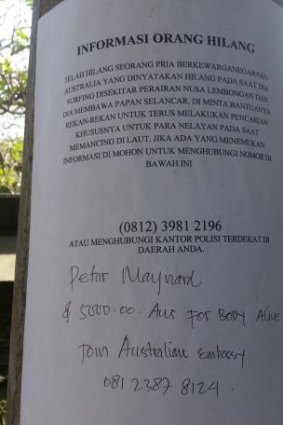 INFORMASI ORANG HILANG
TELAH HILANG SEORANG PRIA BERKEWARGANEGARAAN
AUSTRALIA YANG DINYATAKAN HILANG PADA SAAT DIA
SURFING DISEKITAR PERAIRAN NUSA LEMBONGAN DAN
DIA MEMBAWA PAPAN SELANCAR. DI MINTA BANTUANYA
REKAN-REKAN UNTUK TERUS MELAKUKAN PENCARIAN
KHUSUSNYA UNTUK PARA NELAYAN PADA SAAT
MEMANCING DI LAUT. JIKA ADA YANG MENEMUKAN
INFORMASI DI MOHON UNTUK MENGHUBUNGI NOMOR DI
BAWAH INI
(0812) 3981 2196
ATAU MENGHUBUNGI KANTOR POLISI TERDEKAT DI
DAERAH ANDA.
Petar Maynard
$ 5000.00. Aus For Body Alive
Tom Australian Embassy
081 2387 8124.